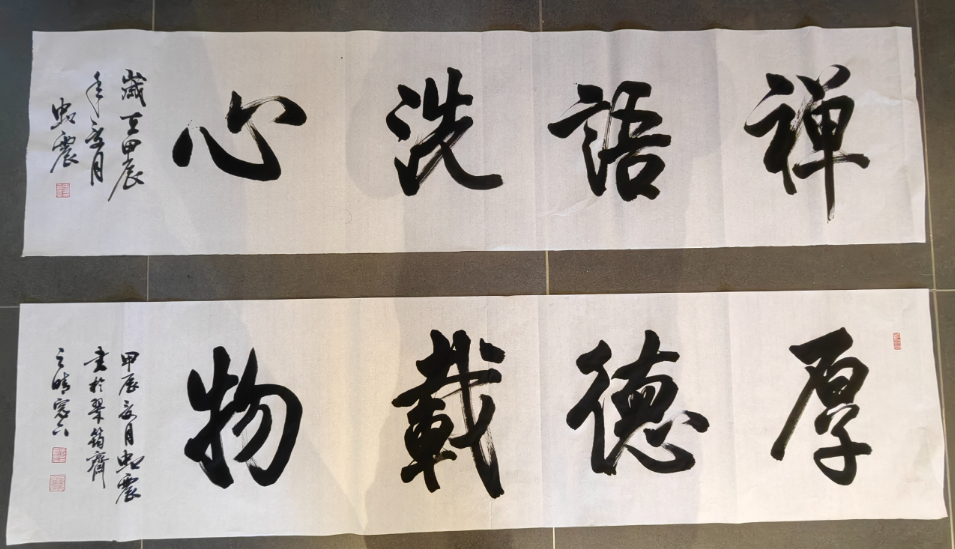 禅語洗心
歲在甲辰
年亥月
忠震
厚德載物
甲辰亥月忠震
書於翠筠齋
之晴窗下